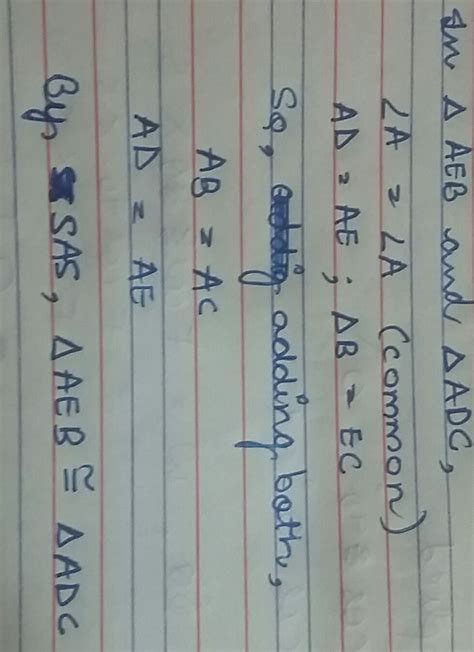 In △ AEB and △ ADC,
∠A = ∠A (common)
AD = AE ; △B = EC
So, adding adding both,
AB = AC
AD = AE
By, SAS, △ AEB ≅ △ ADC